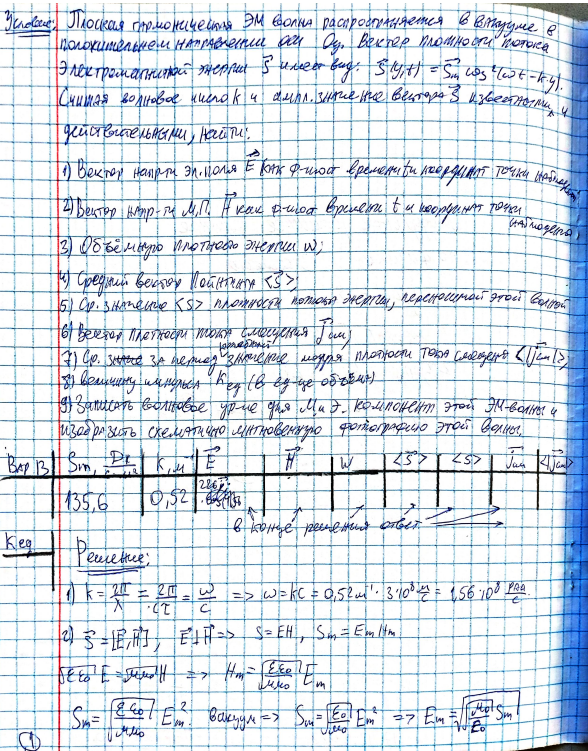 Условие: Плоская гармоническая ЭМ волна распространяется в вакууме в
положительном направлении оси Oy. Вектор плотности потока
электромагнитной энергии S⃗ имеет вид: S⃗(y,t) = S⃗m cos²(ωt − ky).
Считая волновое число k и ампл. значение вектора S⃗ известными и
действительными, найти:
1) Вектор напр-ти эл. поля E⃗ как ф-ию от времени t и координат точки
2) Вектор напр-ти М.П. H⃗ как ф-ию от времени t и координат точки
3) Объёмную плотность энергии w;
4) Средний вектор Пойнтинга <S⃗>;
5) Ср. значение <S> плотности потока энергии, переносимой этой волной
6) Вектор плотности тока смещения j⃗см;
7) Ср. за период значение модуля плотности тока смещения <|j⃗см|>;
8) Величину импульса Kед (в ед-це объёма)
9) Записать волновое ур-ие для М и Э. компонент этой ЭМ-волны и
изобразить схематично мгновенную фотографию этой волны.
Вар 13 Sm, k, м⁻¹ E⃗ H⃗ w <S⃗> <S> j⃗см <|j⃗см|>
135,6 0,52
в конце решения ответ
Kед Решение:
1) k = 2π/λ = 2π/cτ = ω/c => ω = kc = 0,52 м⁻¹ · 3·10⁸ м/с = 1,56·10⁸ рад/с
2) S⃗ = [E⃗,H⃗]; E⃗⊥H⃗ => S = EH, Sm = EmHm
√(εε₀) E = √(μμ₀) H => Hm = √(εε₀/μμ₀) Em
Sm = √(εε₀/μμ₀) Em². вакуум => Sm = √(ε₀/μ₀) Em² => Em = √(√(μ₀/ε₀) Sm)
1